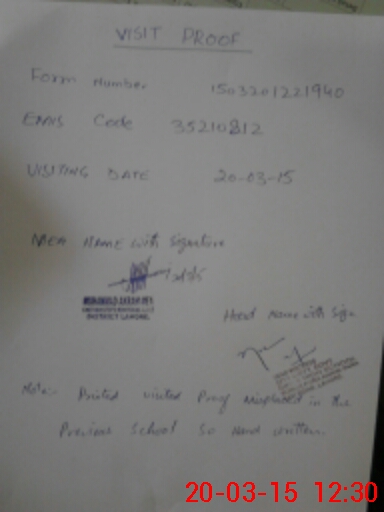 VISIT PROOF
Form Number 1503201221940
EMIS Code 35210812
VISITING DATE 20-03-15
MEA NAME with Signature
DISTRICT LAHORE
Head Name with Sign
Note:- Printed visited Proof misplaced in the
Previous School So Hand written.
20-03-15 12:30